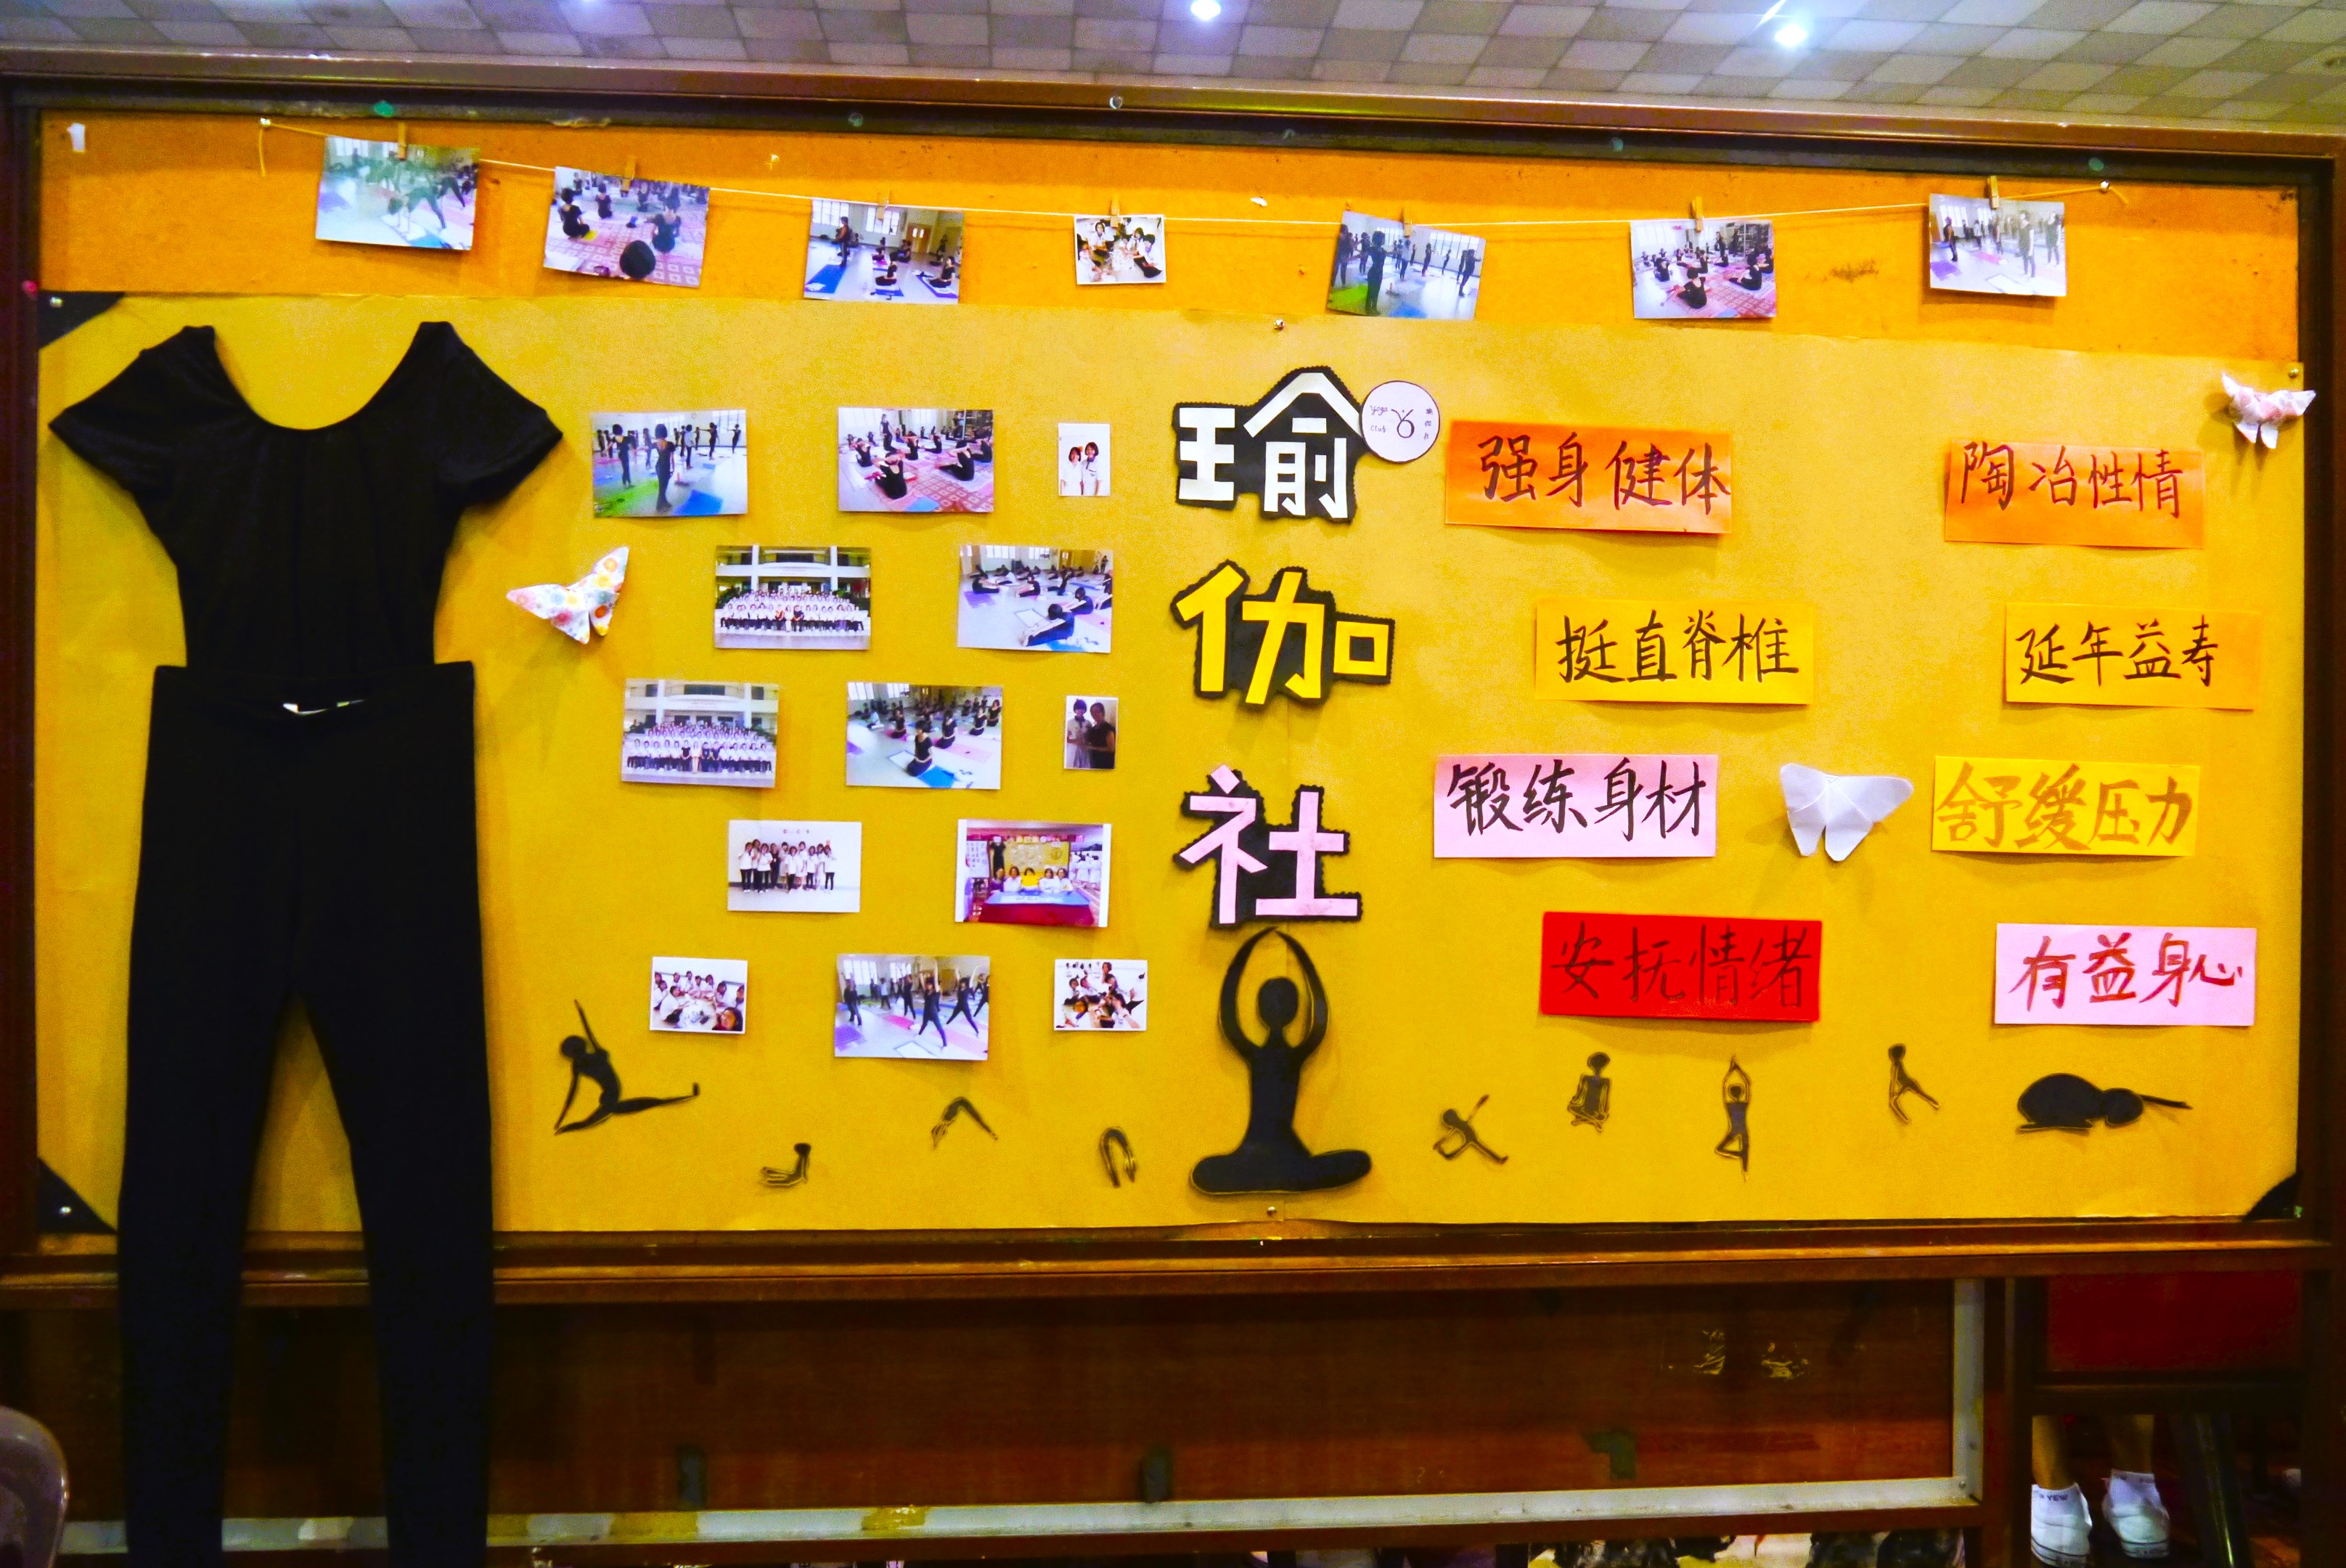 瑜
伽
社
yoga
club
强身健体
陶冶性情
挺直脊椎
延年益寿
锻练身材
舒缓压力
安抚情绪
有益身心